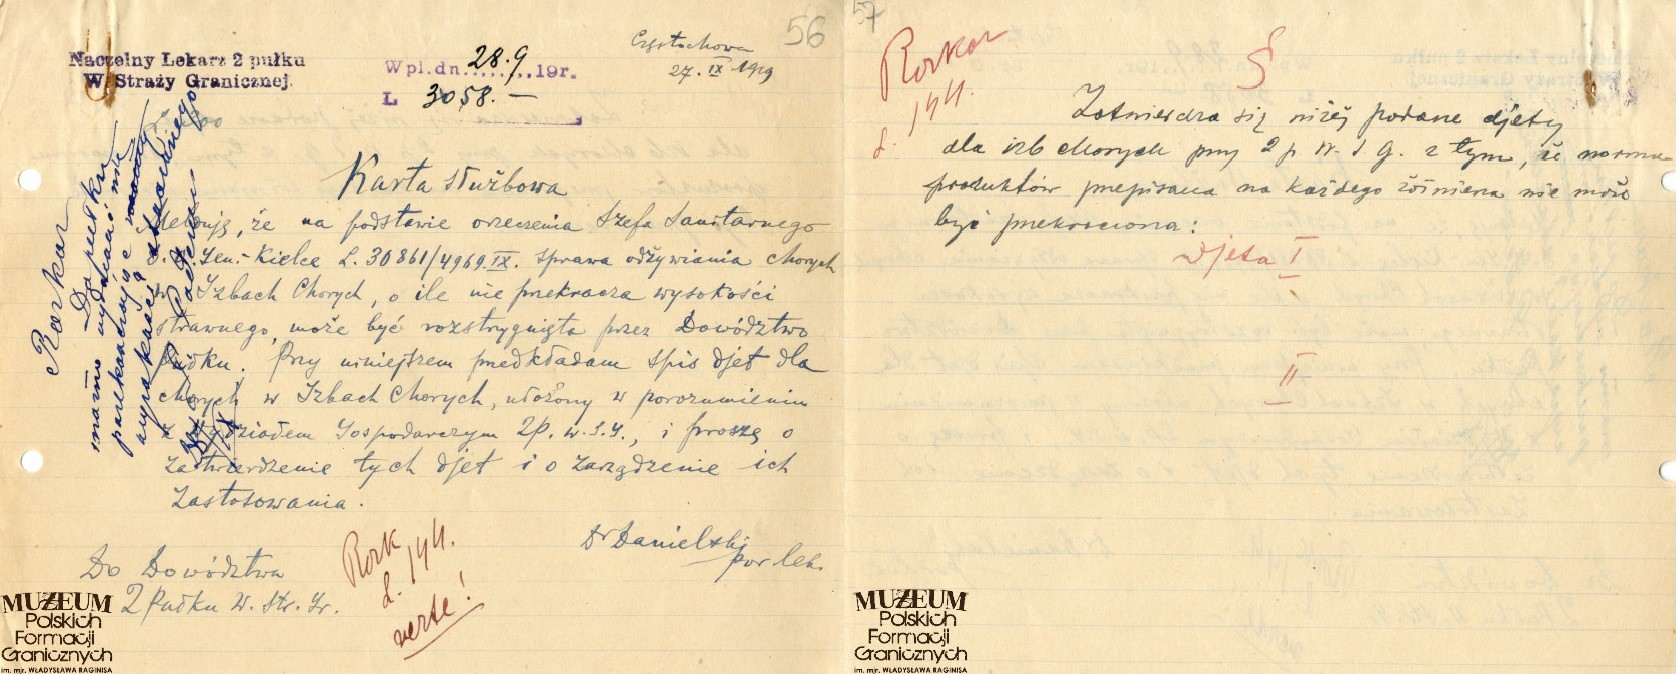 56
Naczelny Lekarz 2 pułku
W. Straży Granicznej.
Wpl.dn. 28.9 19 r.
L 3058.—
Częstochowa
27. IX 1919
Karta służbowa
Melduję, że na podstawie orzeczenia Szefa Sanitarnego
Gen.- Kielce L. 30861/4969.IX. sprawa odżywiania chorych
w Izbach Chorych, o ile nie przekracza wysokości
strawnego, może być rozstrzygnięta przez Dowództwo
Pułku. Przy niniejszem przedkładam spis djet dla
chorych w Izbach Chorych, ułożony w porozumieniu
z Wydziałem Gospodarczym 2 p. w. S. G., i proszę o
zatwierdzenie tych djet i o zarządzenie ich
zastosowania.
Dr Danielski
por lek.
Do Dowództwa
2 Pułku W. Str. Gr.
Rozk
L. 144.
verte!
Rozkaz
Do pułku
MUZEUM
Polskich
Formacji
Granicznych
im. mjr. WŁADYSŁAWA RAGINISA
57
Rozkaz
L. 144.
§
Zatwierdza się niżej podane djety
dla izb chorych przy 2 p W. S. G. z tym, że norma
produktów przepisana na każdego żołnierza nie może
być przekroczona:
Djeta I
II
MUZEUM
Polskich
Formacji
Granicznych
im. mjr. WŁADYSŁAWA RAGINISA